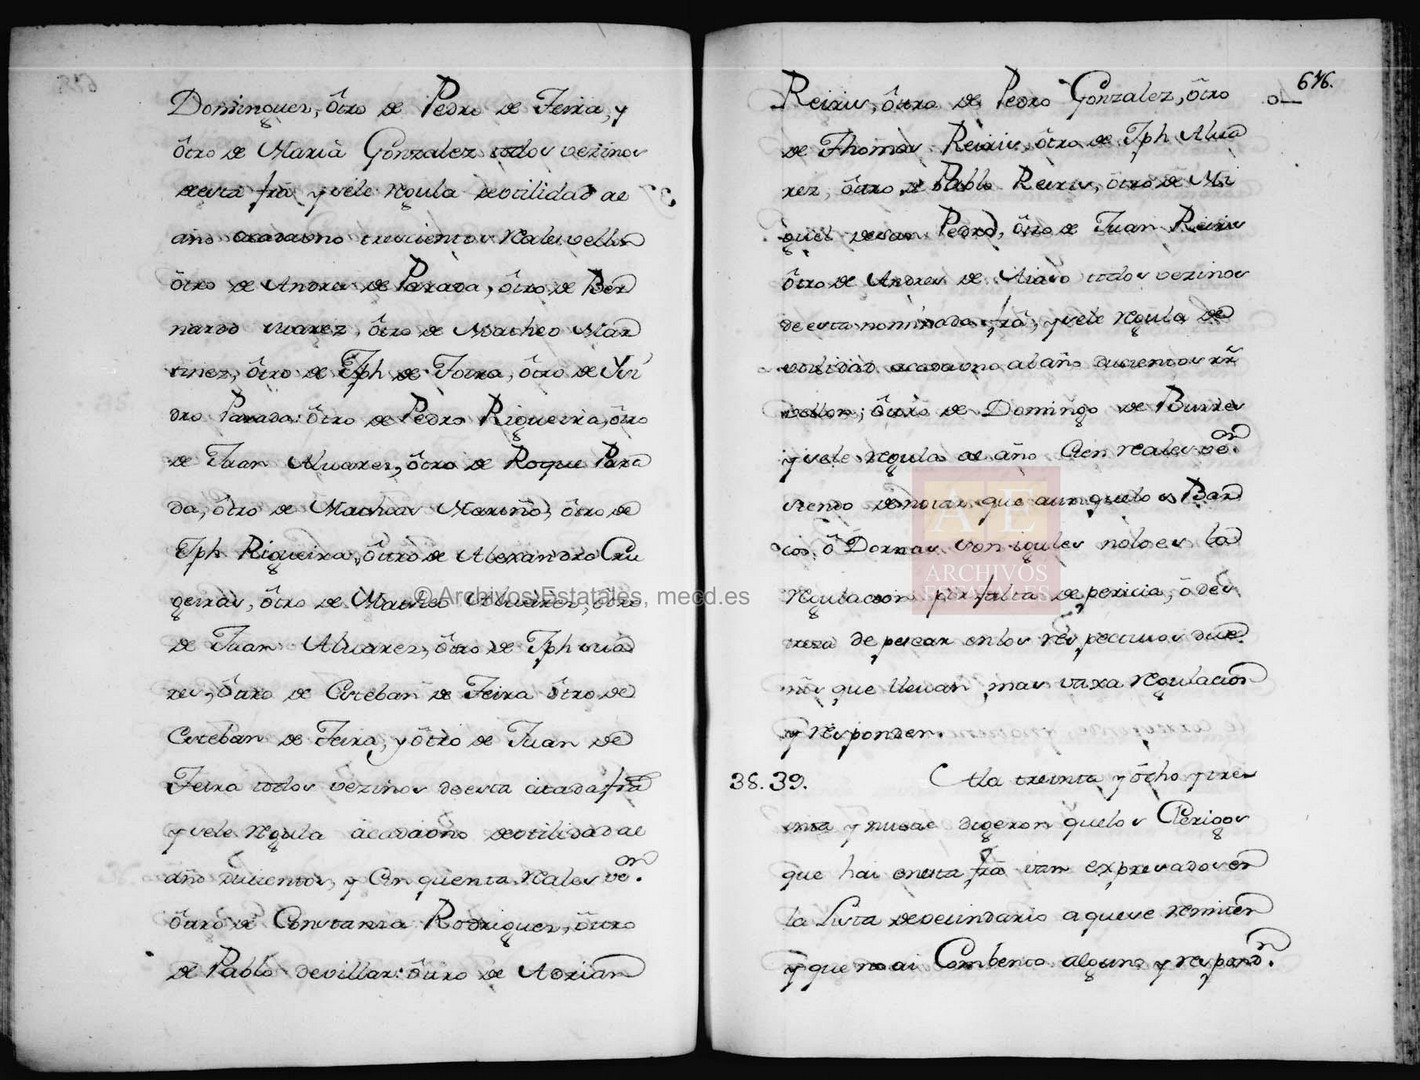 Dominguez, ôtro de Pedro de Feira, y
ôtro de Maria Gonzalez todos vezinos
desta fra. y sele regula de utilidad al
año acadauno trescientos reales vellon
ôtro de Andres de Parada, ôtro de Ber
nardo suarez, ôtro de Matheo Mar
tinez, ôtro de Jph de Foira, ôtro de Ysi
dro Parada: ôtro de Pedro Riqueira, ôtro
de Juan Aluarez, ôtro de Roque Para
da, ôtro de Mathias Mariño, ôtro de
Jph Riqueira, ôtro de Alexandro Cru
geiras, ôtro de Matheo Aluarez, ôtro
de Juan Aluarez, ôtro de Jph sua
rez, ôtro de Esteban de Feira ôtro de
Esteban de Feira, y ôtro de Juan de
Feira todos vezinos desta citada fra
y sele regula acadauno de utilidad al
año ducientos, y Cinquenta reales vo.on
ôtro de Constanza Rodriguez, ôtro
de Pablo de villar: ôtro de Adrian
676.
Reiris, ôtro de Pedro Gonzalez, ôtro
de Thomas Reiris, ôtro de Jph Alua
rez, ôtro de Pablo Reiris, ôtro de Mi
guel de San Pedro, ôtro de Juan Reiris
ôtro de Andres de todos vezinos
de esta nominada fra, y sele regula de
utilidad acadauno al año ducientos rr.s
vellon; ôtro de Domingo de
y sele regula al año Cien reales vo.on
siendo denotar que aunquelos Bar
cos, ô Dornas son iguales nolo es la
regulacion por falta de pericia, ô des
treza de pescar en los respectiuos due
ños que lleuan mas vaxa regulacion
y responden.
38.39. Ala treinta y ôcho y trei
nta y nueue digeron quelos Clerigos
que hai enesta fra van expresados en
la Lista de secundario a que se remiten
y que no ai Combento alguno y respond.n
© Archivos Estatales, mecd.es
AE
ARCHIVOS
ESTATALES